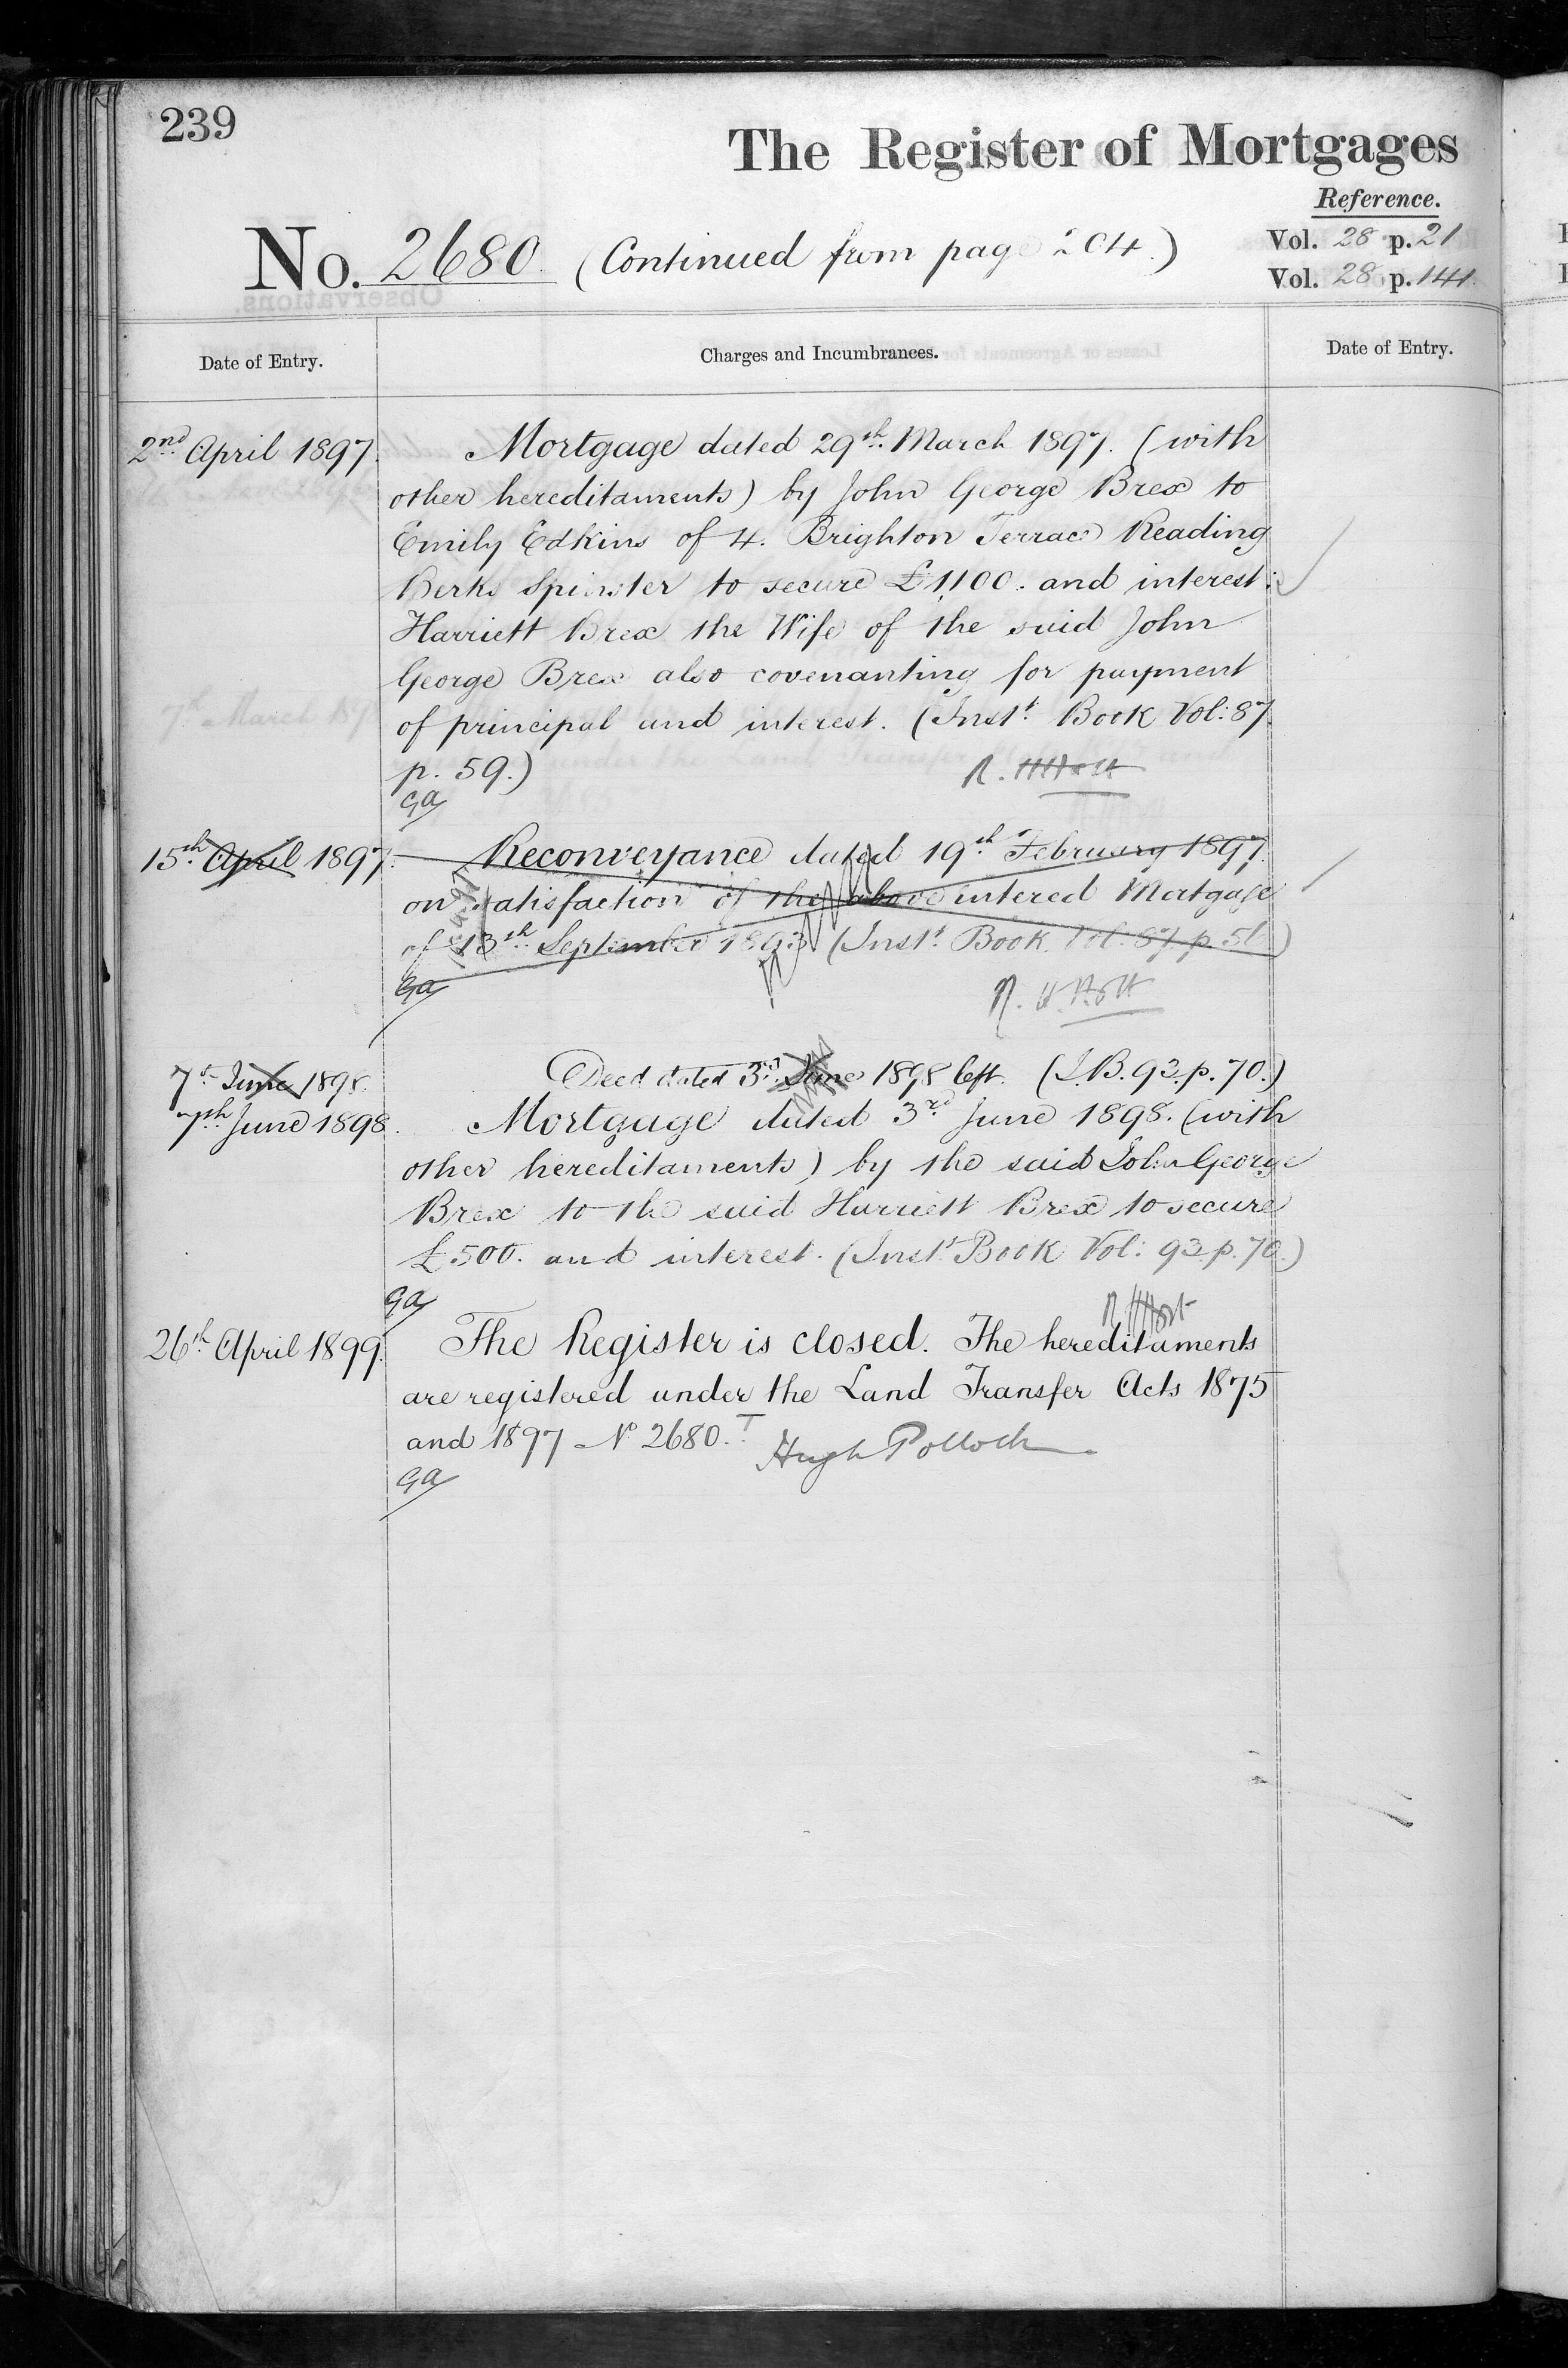 239
The Register of Mortgages
Reference.
No. 2680. (Continued from page 204.)
Vol. 28 p. 21
Vol. 28 p. 141.
Date of Entry.
Charges and Incumbrances.
Date of Entry.
2nd April 1897.
Mortgage dated 29th. March 1897. (with
other hereditaments) by John George Brex to
Emily Edkins of 4. Brighton Terrace Reading
Berks Spinster to secure £1,100. and interest:
Harriett Brex the Wife of the said John
George Brex also covenanting for payment
of principal and interest. (Inst. Book Vol: 87
p. 59.)
R. H. Holt
GA
15th. April 1897.
Reconveyance dated 19th February 1897.
on satisfaction of the above intered Mortgage
of 13th. September 1893 (Inst. Book. Vol. 87. p. 51)
GA
R. H. Holt
7th June 1898.
Deed dated 3rd. June 1898 left. (I.B. 93. p. 70.)
7th June 1898.
Mortgage dated 3rd June 1898. (with
other hereditaments) by the said John George
Brex to the said Harriett Brex to secure
£500. and interest. (Inst. Book Vol: 93 p. 70.)
GA
R H Holt
26th April 1899.
The Register is closed. The hereditaments
are registered under the Land Transfer Acts 1875
and 1897 No 2680. T
Hugh Pollock
GA